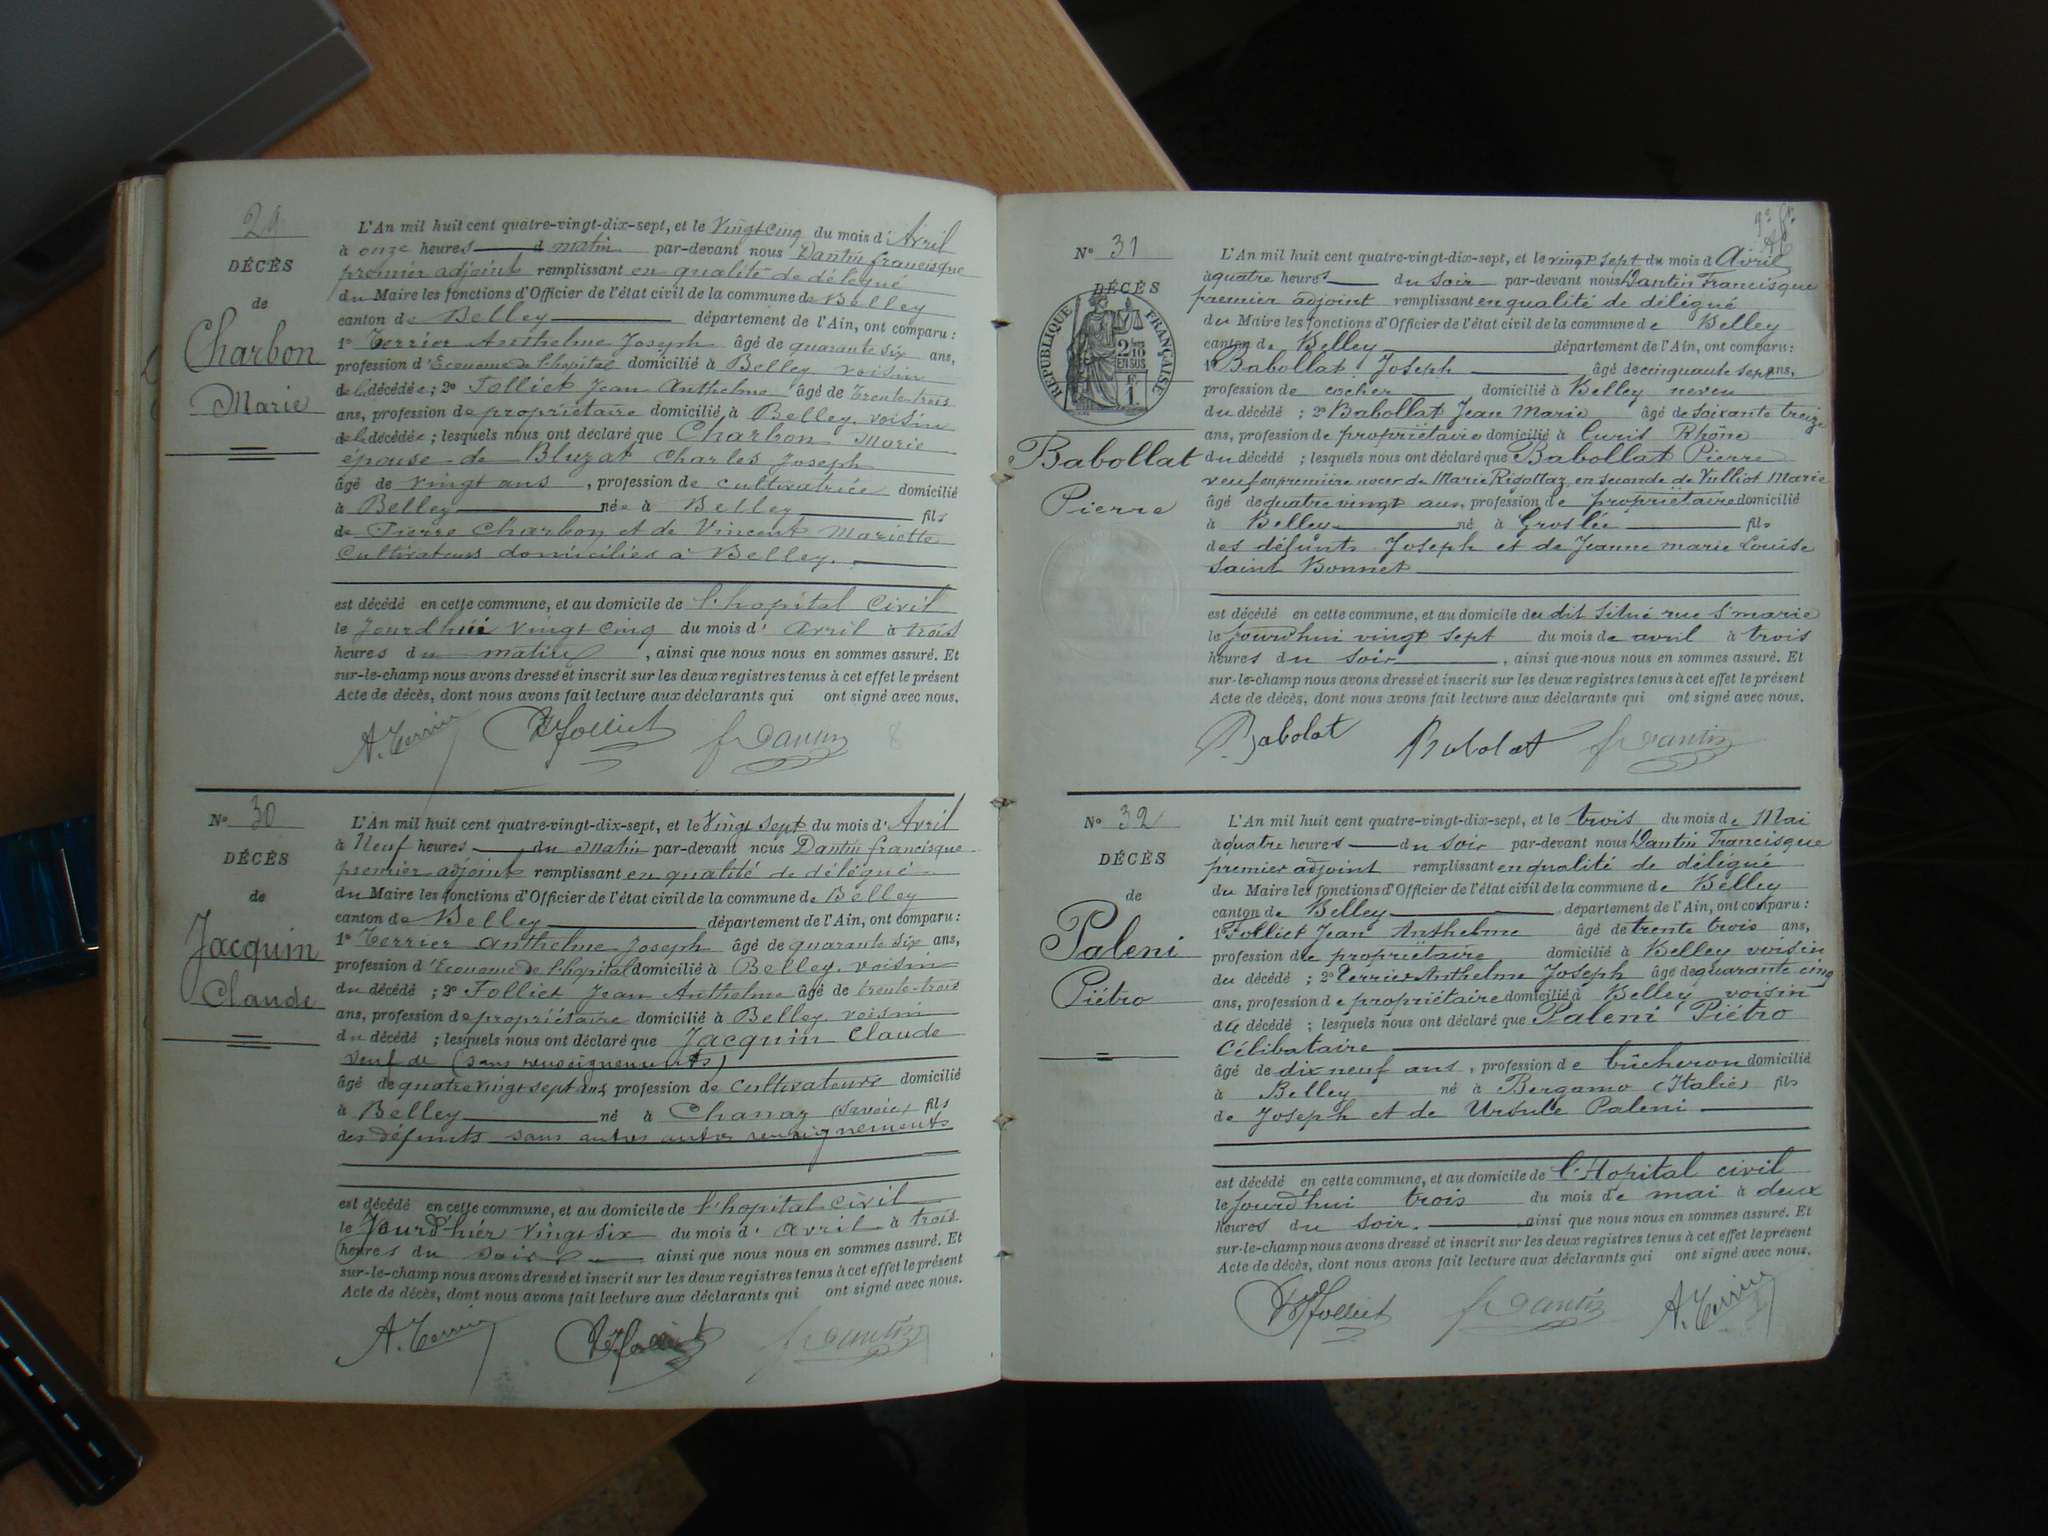 29
DÉCÈS
de
Charbon
Marie
L'An mil huit cent quatre-vingt-dix-sept, et le Vingt cinq du mois d'Avril
à onze heures d matin par-devant nous Dantin francisque
premier adjoint remplissant en qualité de délégué
du Maire les fonctions d'Officier de l'état civil de la commune de Belley
canton de Belley département de l'Ain, ont comparu :
1º Terrier Anthelme Joseph âgé de quarante six ans,
profession d'Econome de l'hopital domicilié à Belley voisin
de la décédée ; 2º Folliet Jean Anthelme âgé de Trente trois
ans, profession de propriétaire domicilié à Belley voisin
de la décédée ; lesquels nous ont déclaré que Charbon Marie
épouse de Bluzat Charles Joseph
âgé de vingt ans , profession de cultivatrice domicilié
à Belley née à Belley fils
de Pierre Charbon et de Vincent Mariette
Cultivateurs domiciliés à Belley.
est décédé en cette commune, et au domicile de l'hopital Civil
le Jourd'hui vingt cinq du mois d' Avril à trois
heures du matin , ainsi que nous nous en sommes assuré. Et
sur-le-champ nous avons dressé et inscrit sur les deux registres tenus à cet effet le présent
Acte de décès, dont nous avons fait lecture aux déclarants qui ont signé avec nous.
A. Terrier Folliet fr Dantin 8
Nº 30
DÉCÈS
de
Jacquin
Claude
L'An mil huit cent quatre-vingt-dix-sept, et le Vingt sept du mois d'Avril
à Neuf heures du Matin par-devant nous Dantin francisque
premier adjoint remplissant en qualité de délégué
du Maire les fonctions d'Officier de l'état civil de la commune de Belley
canton de Belley département de l'Ain, ont comparu :
1º Terrier Anthelme Joseph âgé de quarante six ans,
profession d'Econome de l'hopital domicilié à Belley voisin
du décédé ; 2º Folliet Jean Anthelme âgé de trente-trois
ans, profession de propriétaire domicilié à Belley voisin
du décédé ; lesquels nous ont déclaré que Jacquin Claude
veuf de (sans renseignements)
âgé de quatre vingt sept ans, profession de cultivateurs domicilié
à Belley né à Chanaz (Savoie) fils
des défunts sans autres autres renseignements
est décédé en cette commune, et au domicile de l'hopital civil
le Jourd'hier vingt six du mois d' avril à trois
heures du soir ainsi que nous nous en sommes assuré. Et
sur-le-champ nous avons dressé et inscrit sur les deux registres tenus à cet effet le présent
Acte de décès, dont nous avons fait lecture aux déclarants qui ont signé avec nous.
A. Terrier Folliet fr Dantin
Nº 31
DÉCÈS
RÉPUBLIQUE FRANÇAISE
2/10
EN SUS
1
Babollat
Pierre
L'An mil huit cent quatre-vingt-dix-sept, et le vingt sept du mois d Avril
à quatre heures du soir par-devant nous Dantin Francisque
premier adjoint remplissant en qualité de délégué
du Maire les fonctions d'Officier de l'état civil de la commune de Belley
canton de Belley département de l'Ain, ont comparu :
1º Babollat Joseph âgé de cinquante sept ans,
profession de cocher domicilié à Belley neveu
du décédé ; 2º Babollat Jean Marie âgé de soixante treize
ans, profession de propriétaire domicilié à Curis Rhône
du décédé ; lesquels nous ont déclaré que Babollat Pierre
veuf en première noce de Marie Rigottaz en seconde de Vulliot Marie
âgé de quatre vingt ans, profession de propriétaire domicilié
à Belley né à Groslée fils
des défunts Joseph et de Jeanne marie Louise
Saint Bonnet
est décédé en cette commune, et au domicile du dit situé rue St marie
le Jourd'hui vingt sept du mois de avril à trois
heures du soir , ainsi que nous nous en sommes assuré. Et
sur-le-champ nous avons dressé et inscrit sur les deux registres tenus à cet effet le présent
Acte de décès, dont nous avons fait lecture aux déclarants qui ont signé avec nous.
Babolat Babolat fr Dantin
Nº 32
DÉCÈS
de
Paleni
Piétro
L'An mil huit cent quatre-vingt-dix-sept, et le trois du mois de Mai
à quatre heures du soir par-devant nous Dantin Francisque
premier adjoint remplissant en qualité de délégué
du Maire les fonctions d'Officier de l'état civil de la commune de Belley
canton de Belley département de l'Ain, ont comparu :
1º Folliet Jean Anthelme âgé de trente trois ans,
profession de propriétaire domicilié à Belley voisin
du décédé ; 2º Terrier Anthelme Joseph âgé de quarante cinq
ans, profession de propriétaire domicilié à Belley voisin
du décédé ; lesquels nous ont déclaré que Paleni Piétro
Célibataire
âgé de dix neuf ans , profession de bûcheron domicilié
à Belley né à Bergamo (Italie) fils
de Joseph et de Ursule Paleni
est décédé en cette commune, et au domicile de l'Hopital civil
le Jourd'hui trois du mois de mai à deux
heures du soir. ainsi que nous nous en sommes assuré. Et
sur-le-champ nous avons dressé et inscrit sur les deux registres tenus à cet effet le présent
Acte de décès, dont nous avons fait lecture aux déclarants qui ont signé avec nous.
Folliet fr Dantin A. Terrier